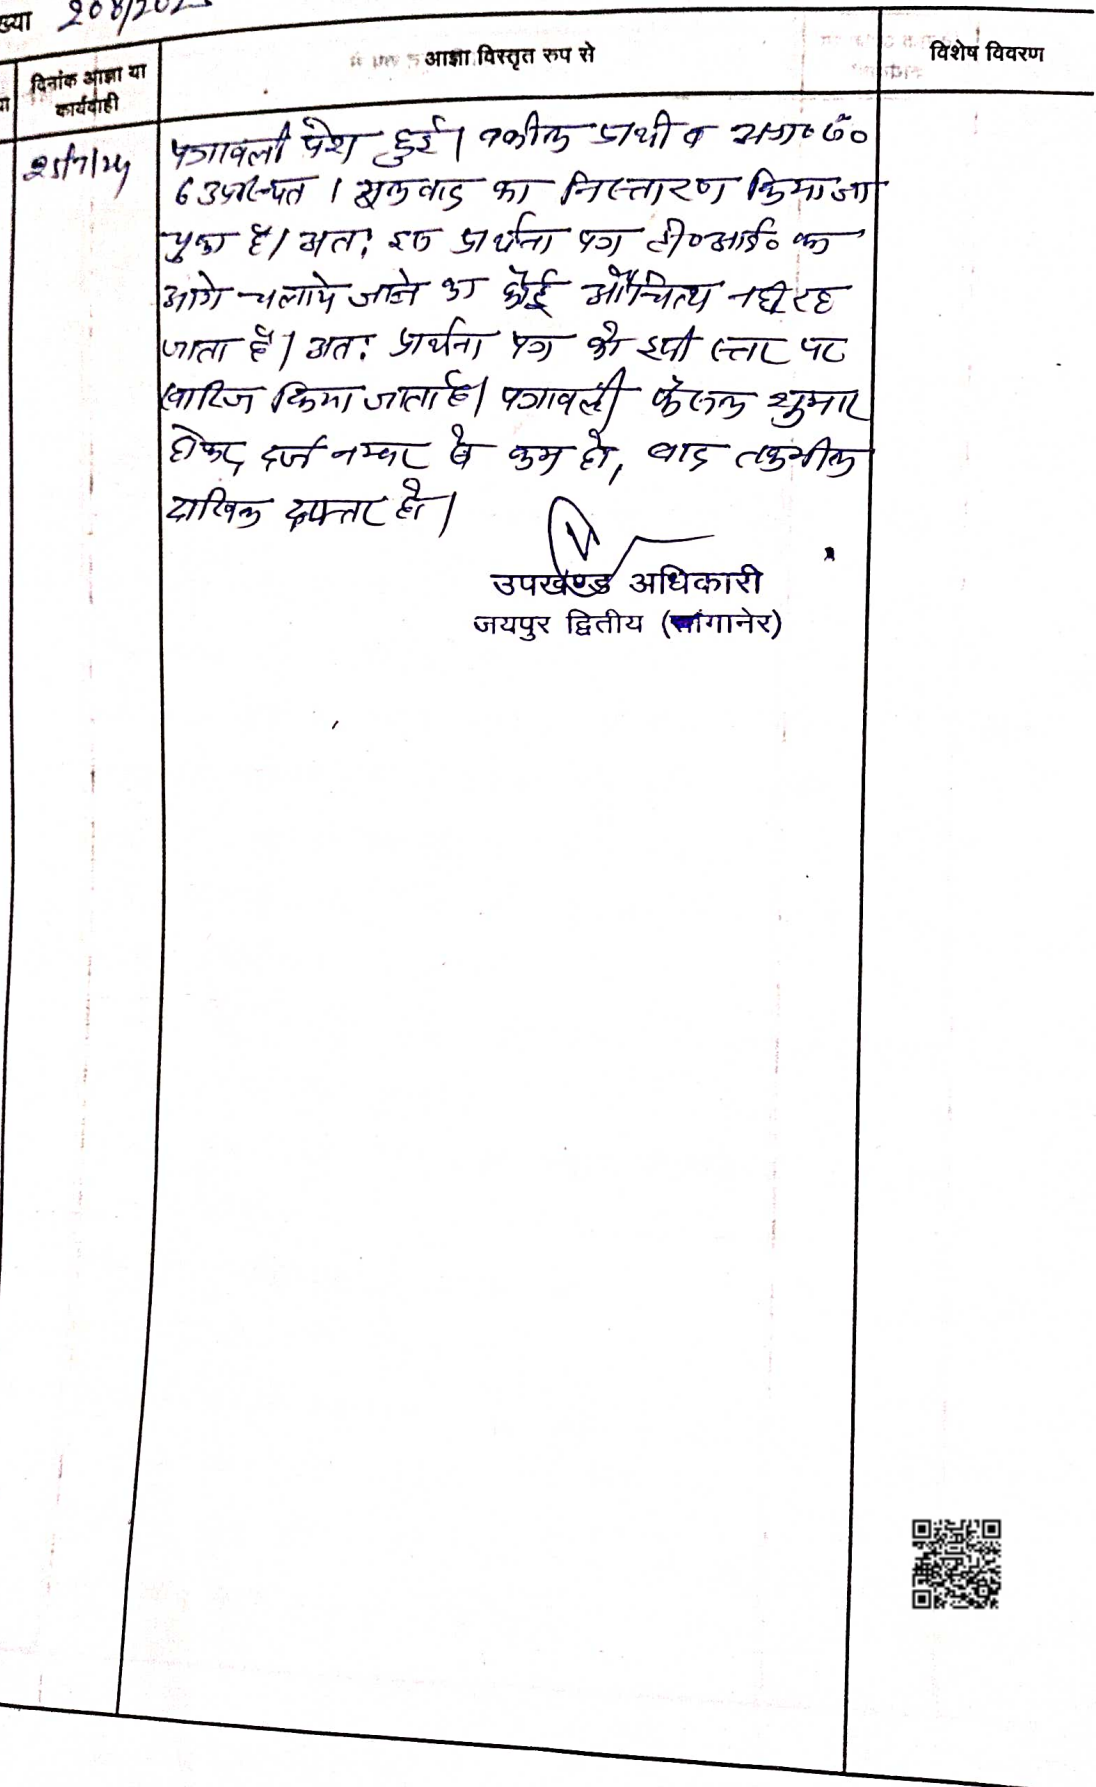 ख्या 208/202
दिनांक आज्ञा या
कार्यवाही
आज्ञा विस्तृत रुप से
विशेष विवरण
25/7/24
पत्रावली पेश हुई। वकील प्रार्थी व अप्रा० सं०
6 उपस्थित । मूल वाद का निस्तारण किया जा
चुका है। अतः इस प्रार्थना पत्र टी०आई० का
आगे चलाये जाने का कोई औचित्य नही रह
जाता है। अतः प्रार्थना पत्र को इसी स्तर पर
खारिज किया जाता है। पत्रावली फैसल शुमार
होकर दर्ज नम्बर से कम हो, बाद तकमील
दाखिल दफ्तर हो।
उपखण्ड अधिकारी
जयपुर द्वितीय (सांगानेर)